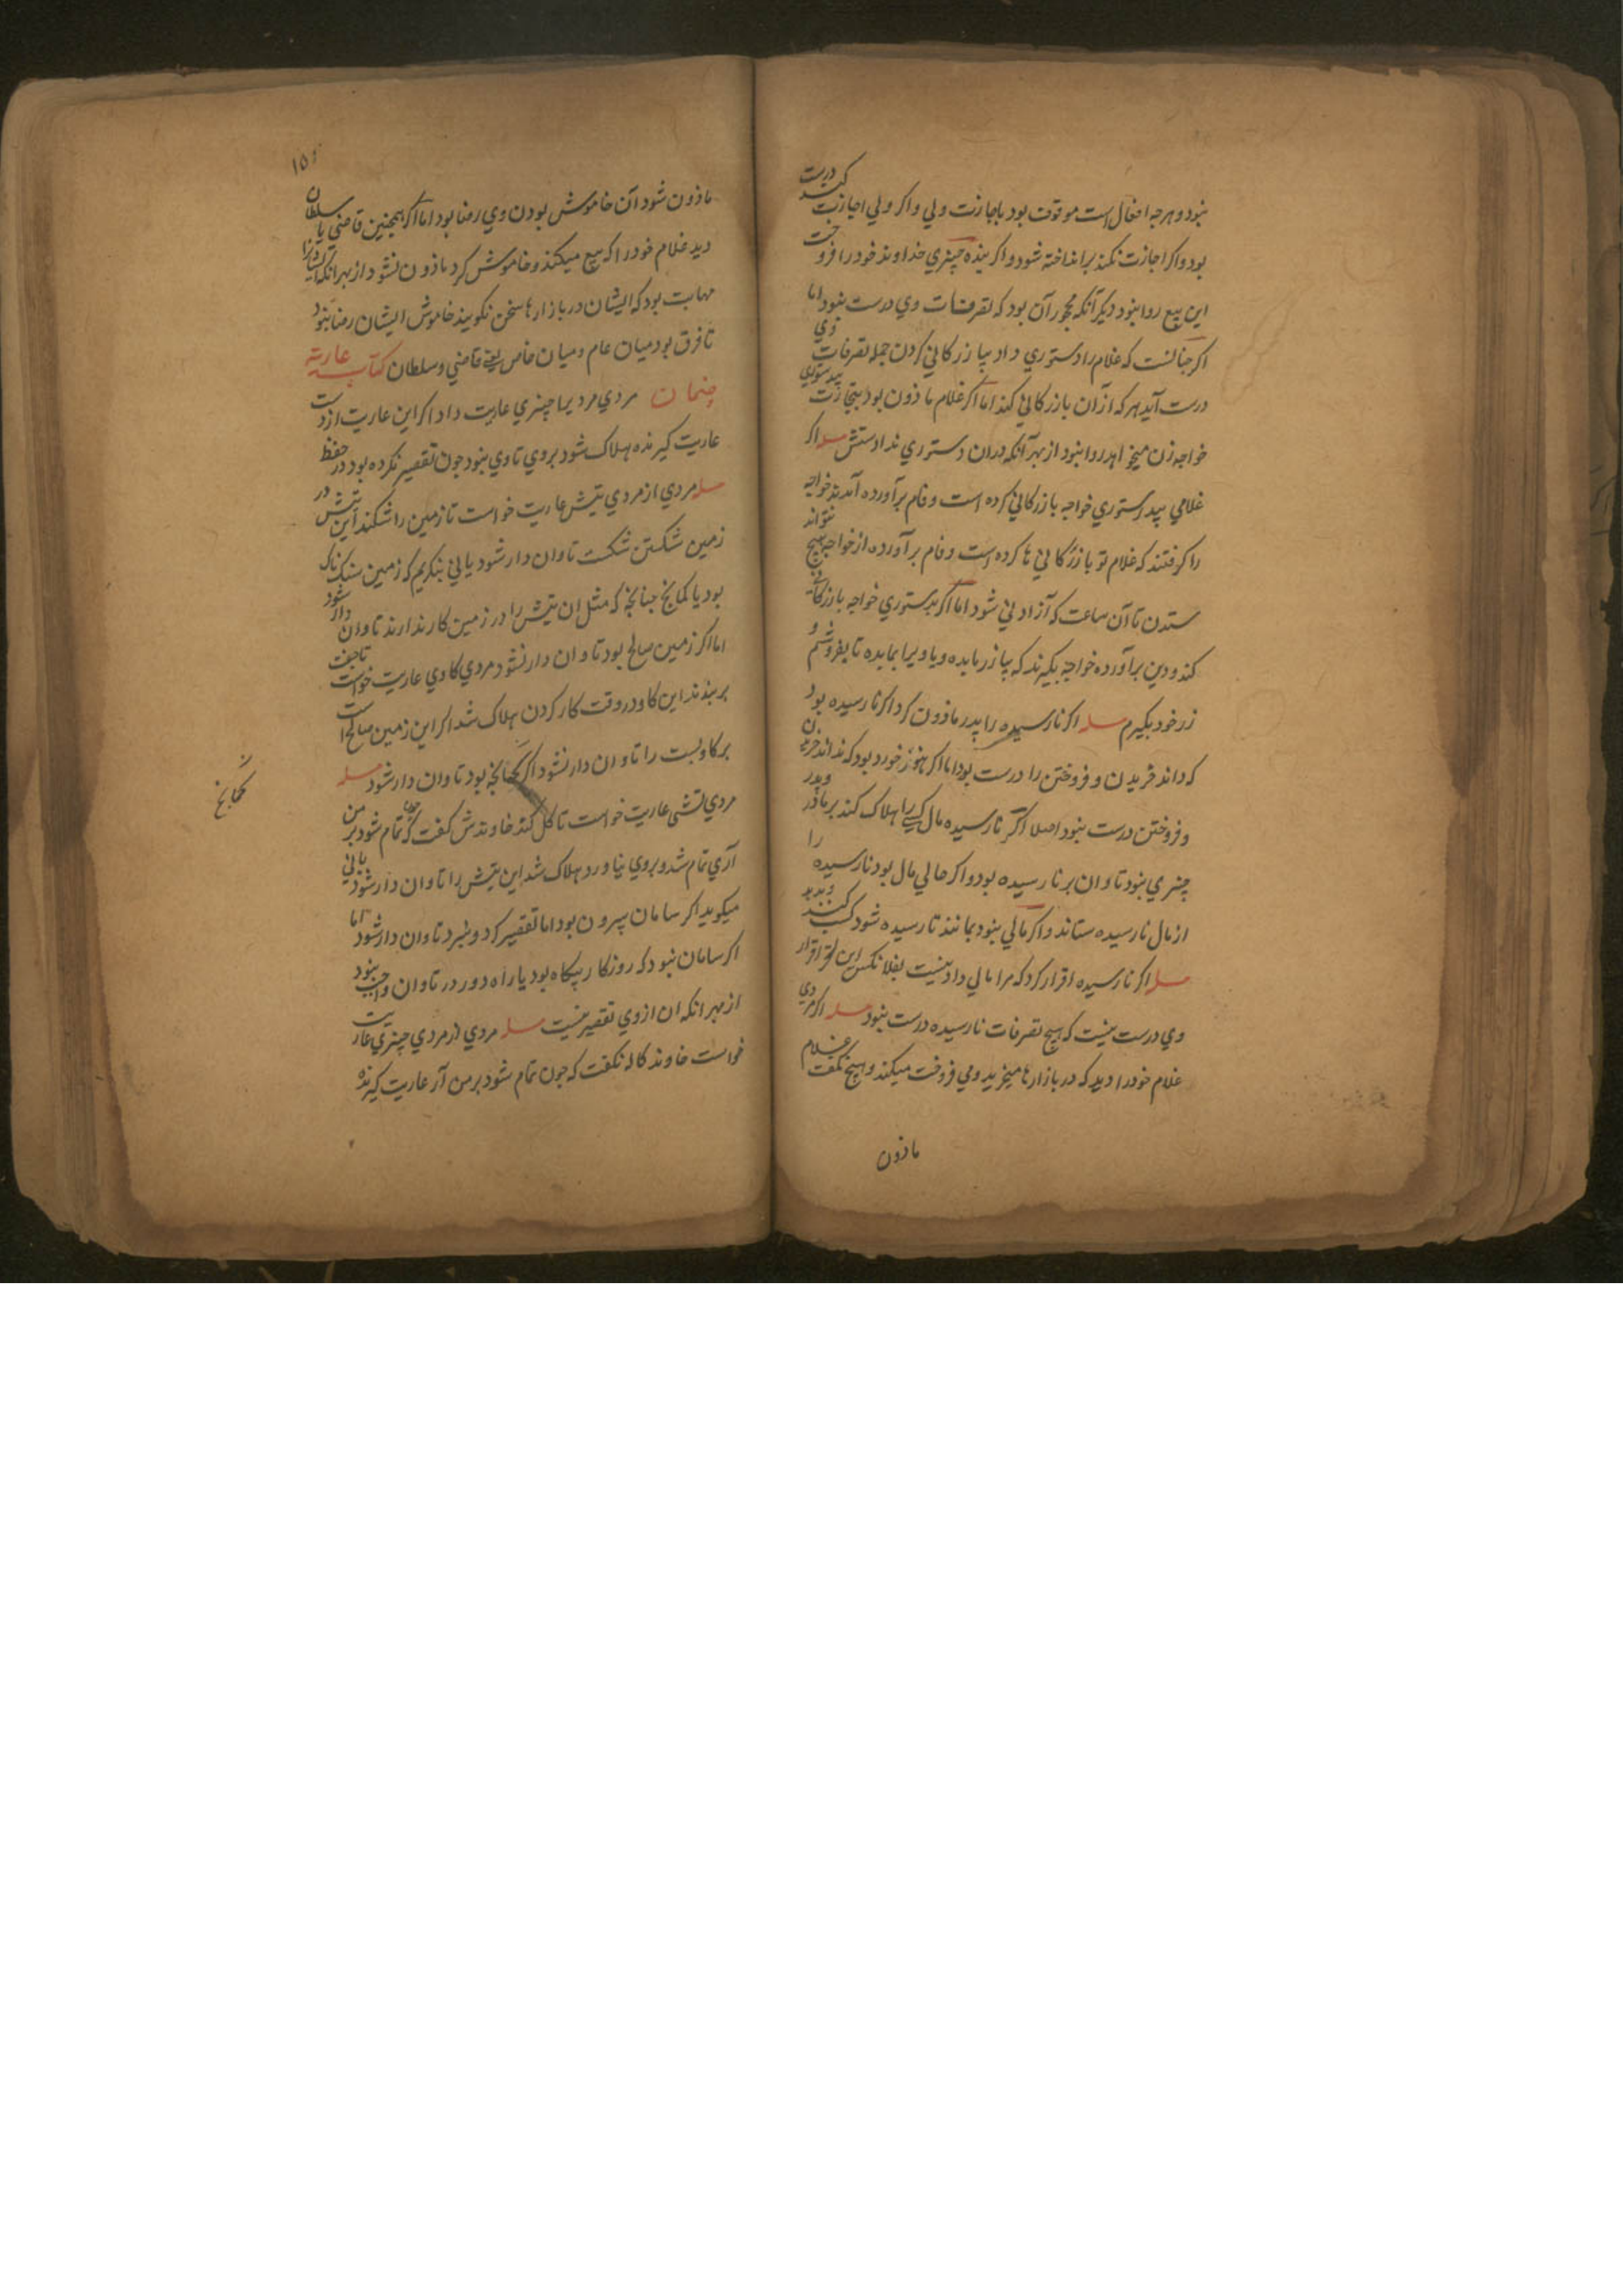 نبود و هرچه احفال است موقوف بود باجازت ولي و اكر ولي اجازت كند درست
بود و اكر اجازت نكند برانداخته شود و اكر بنده چيزي خداوند خود را فروخت
اين بيع روا نبود ديكر آنكه محجور آن بود كه تصرفات وي درست نبود اما
اكر چنانست كه غلام را دستوري داد ببازركاني كردن جمله تصرفات وي
درست آيد هر كه از آن بازركاني كند اما اكر غلام ماذون بود بتجارت بيدستوري
خواجه زن ميخواهد روا نبود از بهر آنكه در ان دستوري ندادستش مسله اكر
غلامي بيدستوري خواجه بازركاني كرده است و فام برآورده آمدند خواجه
را كرفتند كه غلام تو بازركاني ها كرده است و فام برآورده از خواجه هيچ نتواند
ستدن تا آن ساعت كه آزاد ني شود اما اكر بدستوري خواجه بازركاني
كند و دين برآورده خواجه بكيرند كه يا زر بايده و يا ويرا بمايده تا بفروشم و
زر خود بكيرم مسله اكر نارسيده را پدر ماذون كرد اكر نارسيده بود
كه داند خريدن و فروختن را درست بود اما اكر هنوز خورد بود كه نداند خريدن
و فروختن درست نبود اصلا اكر نارسيده مال كسي را هلاك كند بر مادر و پدر
چيزي نبود تاوان بر نارسيده بود و اكر حالي مال بود نارسيده را
از مال نارسيده ستاند و اكر مالي نبود بمانند تا رسيده شود كسب كند و بدهد
مسله اكر نارسيده اقرار كرد كه مرا مالي دادنيست بفلانكس اين اقرار
وي درست نيست كه هيچ تصرفات نارسيده درست نبود مسله اكر مردي
غلام خود را ديد كه در بازارها ميخريد و مي فروخت ميكند و هيچ نكفت غلام
ماذون
ماذون شود آن خاموش بودن وي رضا بود اما اكر همچنين قاضي يا سلطان
ديد غلام خود را كه بيع ميكند و خاموش كرد ماذون نشود از بهر آنكه ايشانرا
مهابت بود كه ايشان در بازارها سخن نكويند خاموش ايشان رضا نبود
تا فرق بود ميان عام و ميان خاص يعني قاضي و سلطان كتاب عارية
مردي مرديرا چيزي عاريت داد اكر اين عاريت از دست
عاريت كيرنده هلاك شود بروي تاوي نبود چون تقصير نكرده بود در حفظ
مسله مردي از مردي تيشي عاريت خواست تا زمين را شكند اين تيش در
زمين شكستن شكست تاوان دار شود ياني بنكريم كه زمين سنك ناك
بود يا كمانج چنانچه كه مثل ان تيش را در زمين كار ندارند تاوان دار شود
اما اكر زمين صالح بود تاوان دار نشود مردي كاوي عاريت خواست تا جفت
بربندد اين كاو در وقت كار كردن هلاك شد اكر اين زمين صالح است
بر كاو بست را تاوان دار نشود اكر كمانجه بود تاوان دار شود مسله
مردي تشي عاريت خواست تا كل كند خاوندش كفت كه چون تمام شود بر من
آري تمام شد و بروي نياورد هلاك شد اين تيش را تاوان دار شود ياني
ميكويد اكر سامان بيرون بود اما تقصير كرد و نبرد تاوان دار شود اما
اكر سامان نبود كه روزكار بيكاه بود يا راه دور در تاوان واجب نبود
از بهر انكه ان از وي تقصير نيست مسله مردي از مردي چيزي عاريت
خواست خاوند كالا نكفت كه چون تمام شود بر من آر عاريت كيرنده
كمانج